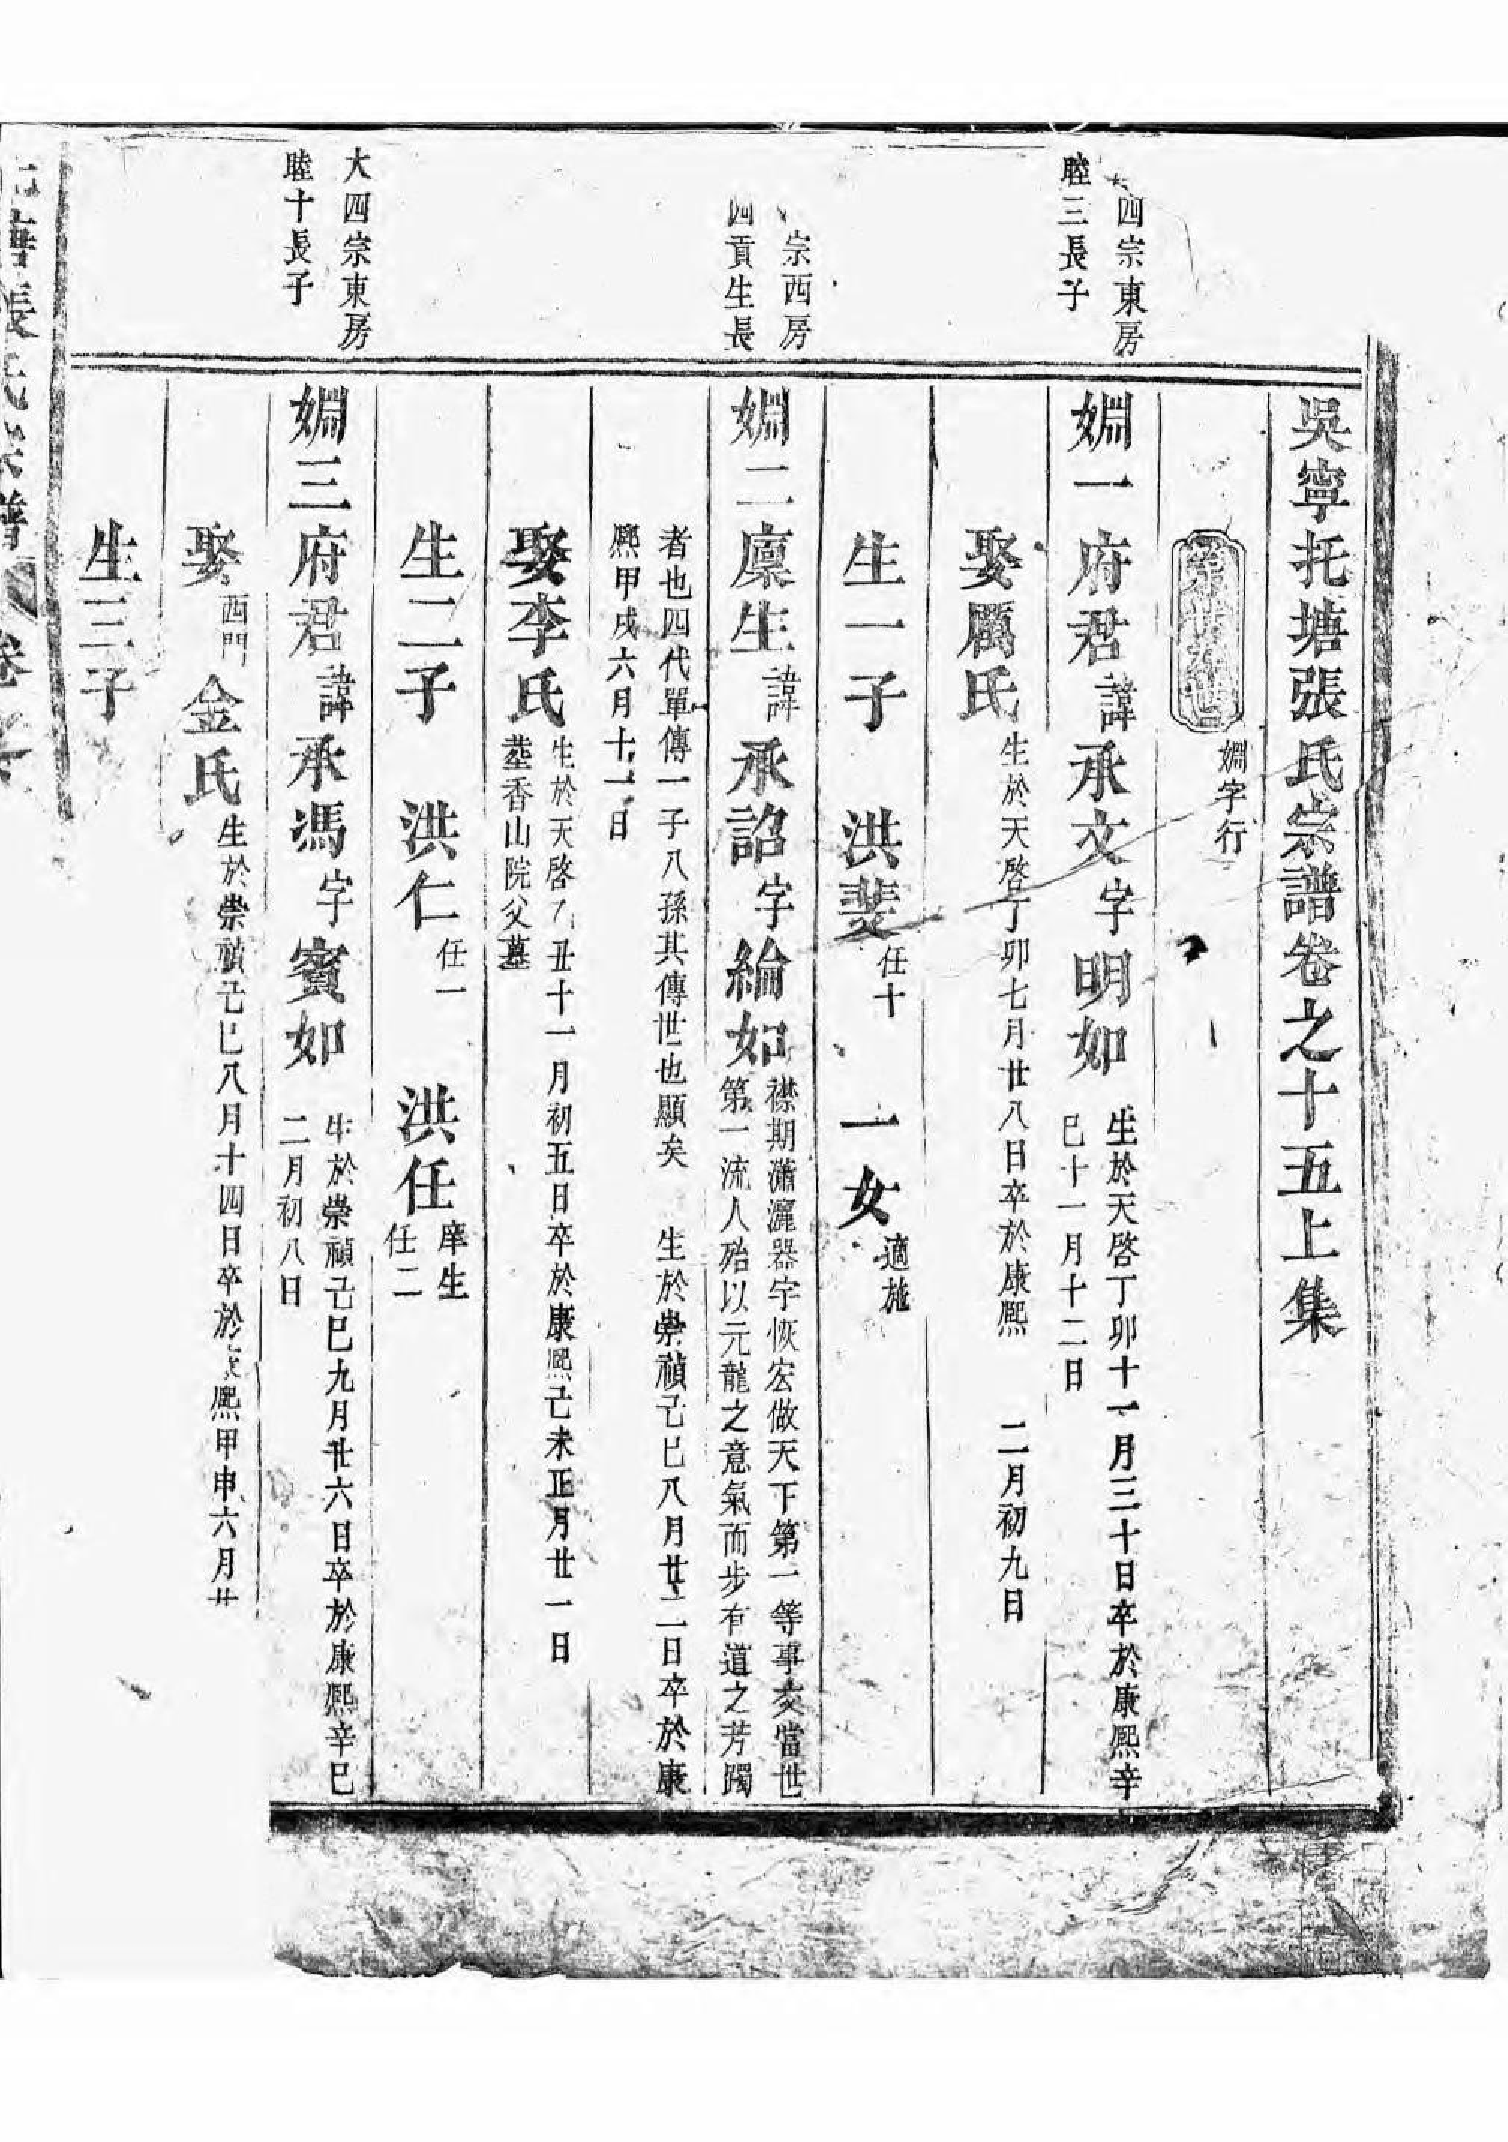 吳寧托塘張氏宗譜卷之十五上集
嫺字行
四宗東房
睦三長子
嫺一府君諱承文字明如
生於天啓丁卯十一月三十日卒於康熙辛
巳十一月十二日
娶厲氏生於天啓丁卯七月廿八日卒於康熙 二月初九日
生一子 洪斐任十 一女適施
宗西房
四貢生長
嫺二廩生諱承詔字綸如
襟期瀟灑器宇恢宏做天下第一等事交當世
第一流人殆以元龍之意氣而步有道之芳躅
者也四代單傳一子八孫其傳世也顯矣 生於崇禎己巳八月廿二日卒於康
熙甲戌六月十一日
娶李氏
生於天啓 丑十一月初五日卒於康熙己未正月廿一日
塟香山院父墓
生二子 洪仁任一 洪任
庠生
任二
大四宗東房
睦十長子
嫺三府君諱承馮字賓如
生於崇禎己巳九月廿六日卒於康熙辛巳
二月初八日
娶西門金氏生於崇禎己巳八月十四日卒於 熙甲申六月廿
生三子
張氏宗譜 卷